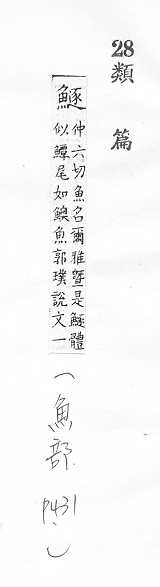 28類篇
鱁
仲六切魚名爾雅鱀是鱁體
似鱏尾如䱐魚郭璞說文一
(魚部 P431.)